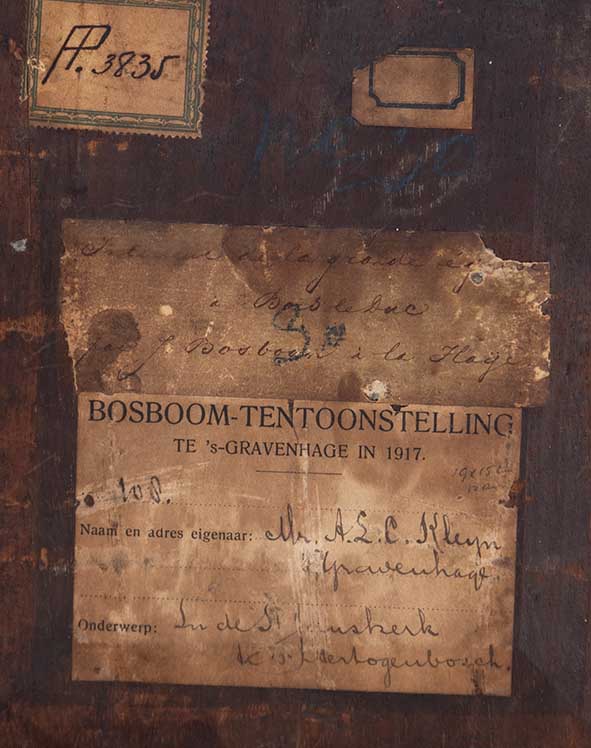 AP. 3835
No 50
Interieur de la grande église
à Bois le Duc
par J. Bosboom à la Haye
50
BOSBOOM-TENTOONSTELLING
TE 's-GRAVENHAGE IN 1917.
No 108.
Naam en adres eigenaar: Mr. A.E.C. Kleyn
's Gravenhage.
Onderwerp: In de St Janskerk
te 's-Hertogenbosch.